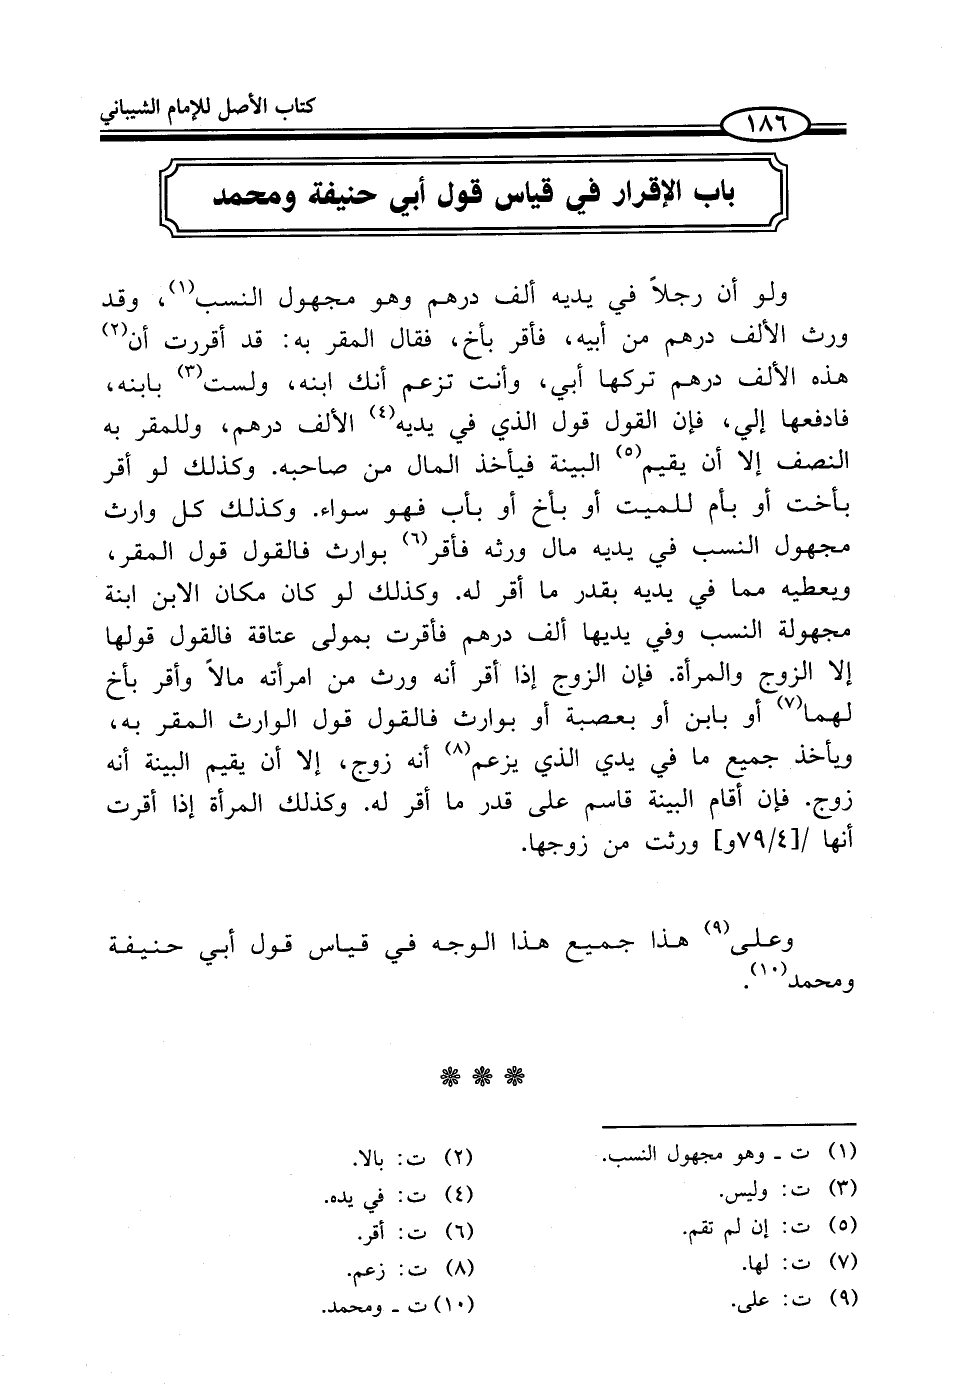 كتاب الأصل للإمام الشيباني
١٨٦
باب الإقرار في قياس قول أبي حنيفة ومحمد
ولو أن رجلاً في يديه ألف درهم وهو مجهول النسب(١)، وقد
ورث الألف درهم من أبيه، فأقر بأخ، فقال المقر به: قد أقررت أن(٢)
هذه الألف درهم تركها أبي، وأنت تزعم أنك ابنه، ولست(٣) بابنه،
فادفعها إلي، فإن القول قول الذي في يديه(٤) الألف درهم، وللمقر به
النصف إلا أن يقيم(٥) البينة فيأخذ المال من صاحبه. وكذلك لو أقر
بأخت أو بأم للميت أو بأخ أو بأب فهو سواء. وكذلك كل وارث
مجهول النسب في يديه مال ورثه فأقر(٦) بوارث فالقول قول المقر،
ويعطيه مما في يديه بقدر ما أقر له. وكذلك لو كان مكان الابن ابنة
مجهولة النسب وفي يديها ألف درهم فأقرت بمولى عتاقة فالقول قولها
إلا الزوج والمرأة. فإن الزوج إذا أقر أنه ورث من امرأته مالاً وأقر بأخ
لهما(٧) أو بابن أو بعصبة أو بوارث فالقول قول الوارث المقر به،
ويأخذ جميع ما في يدي الذي يزعم(٨) أنه زوج، إلا أن يقيم البينة أنه
زوج. فإن أقام البينة قاسم على قدر ما أقر له. وكذلك المرأة إذا أقرت
أنها /[٧٩/٤و] ورثت من زوجها.
وعلى(٩) هذا جميع هذا الوجه في قياس قول أبي حنيفة
ومحمد(١٠).
(١) ت ـ وهو مجهول النسب. (٢) ت: بالا.
(٣) ت: وليس. (٤) ت: في يده.
(٥) ت: إن لم تقم. (٦) ت: أقر.
(٧) ت: لها. (٨) ت: زعم.
(٩) ت: على. (١٠) ت ـ ومحمد.